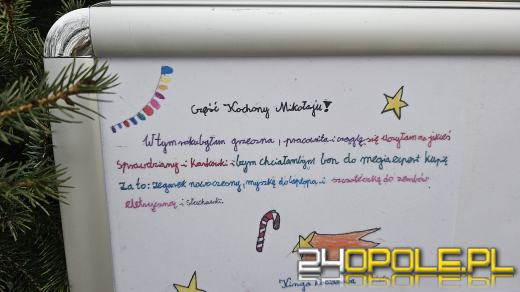 Cześć Kochany Mikołaju!
W tym roku byłam grzeczna, pracowita i ciągle się uczyłam na jakieś
Sprawdziany i kartkówki i bym chciałambym bon do megia expert kupię
za to: zegarek nowoczesny, myszkę do laptopa i szczoteczkę do zembów
elektryczną i słuchawki.
Kinga
24OPOLE.PL